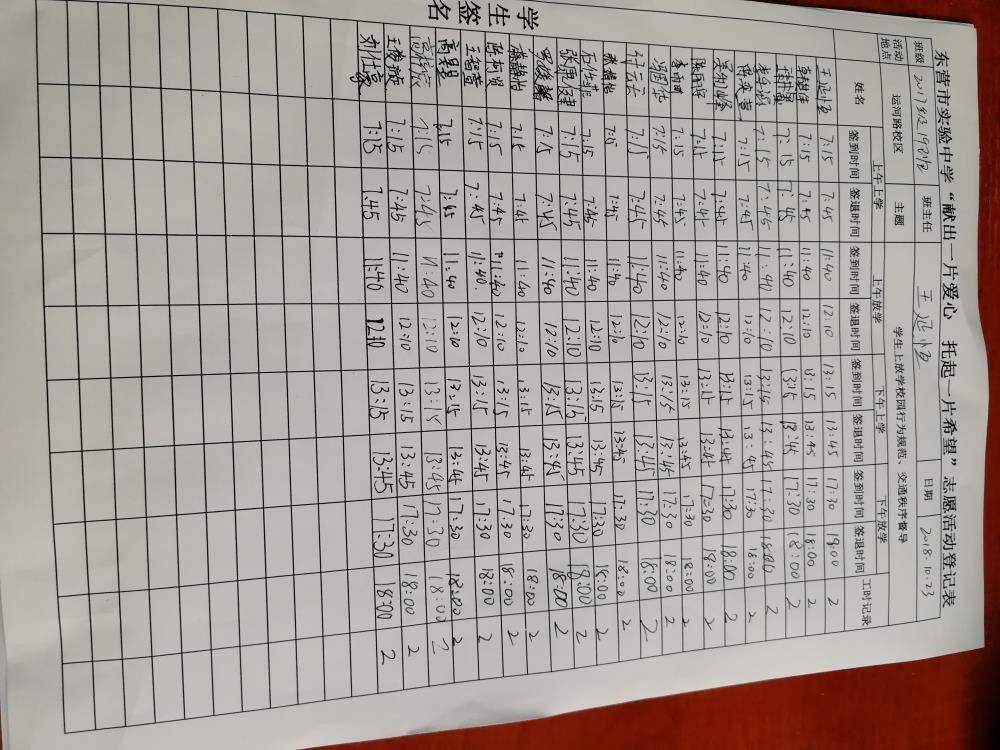 东营市实验中学“献出一片爱心 托起一片希望”志愿活动登记表
班级 2017级19班 班主任 王延 日期 2018.10.23
活动地点 运河路校区 主题 学生上放学校园行为规范、交通秩序督导
姓名 上午上学 上午放学 下午上学 下午放学 工时记录
签到时间 签退时间 签到时间 签退时间 签到时间 签退时间 签到时间 签退时间
学生签名
王延 7:15 7:45 11:40 12:10 13:15 13:45 17:30 18:00 2
7:15 7:45 11:40 12:10 13:15 13:45 17:30 18:00 2
7:15 7:45 11:40 12:10 13:15 13:45 17:30 18:00 2
7:15 7:45 11:40 12:10 13:15 13:45 17:30 18:00 2
7:15 7:45 11:40 12:10 13:15 13:45 17:30 18:00 2
7:15 7:45 11:40 12:10 13:15 13:45 17:30 18:00 2
7:15 7:45 11:40 12:10 13:15 13:45 17:30 18:00 2
7:15 7:45 11:40 12:10 13:15 13:45 17:30 18:00 2
7:15 7:45 11:40 12:10 13:15 13:45 17:30 18:00 2
云云 7:15 7:45 11:40 12:10 13:15 13:45 17:30 18:00 2
7:15 7:45 11:40 12:10 13:15 13:45 17:30 18:00 2
7:15 7:45 11:40 12:10 13:15 13:45 17:30 18:00 2
张康 7:15 7:45 11:40 12:10 13:15 13:45 17:30 18:00 2
7:15 7:45 11:40 12:10 13:15 13:45 17:30 18:00 2
7:15 7:45 11:40 12:10 13:15 13:45 17:30 18:00 2
陈柯贤 7:15 7:45 11:40 12:10 13:15 13:45 17:30 18:00 2
王智萱 7:15 7:45 11:40 12:10 13:15 13:45 17:30 18:00 2
7:15 7:45 11:40 12:10 13:15 13:45 17:30 18:00 2
7:15 7:45 11:40 12:10 13:15 13:45 17:30 18:00 2
王俊璇 7:15 7:45 11:40 12:10 13:15 13:45 17:30 18:00 2
刘仕豪 7:15 7:45 11:40 12:10 13:15 13:45 17:30 18:00 2